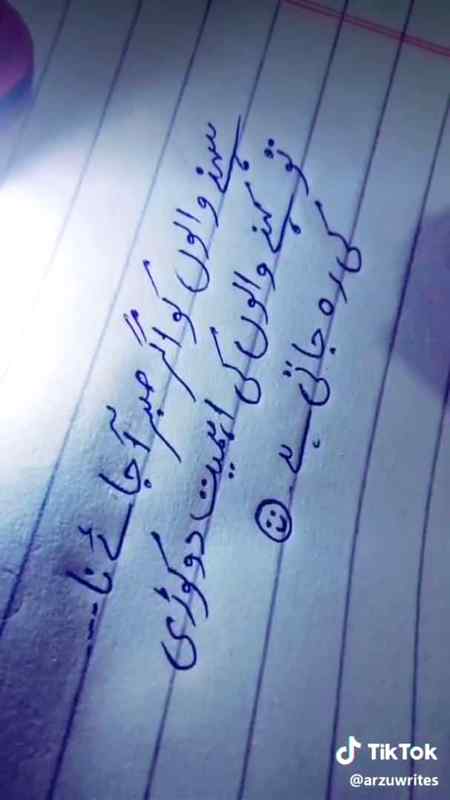 سہنے والوں کو اگر صبر آجائے نا---
تو کہنے والوں کی اہمیت دو کوڑی
کی رہ جاتی ہے۔ ☺
TikTok
@arzuwrites